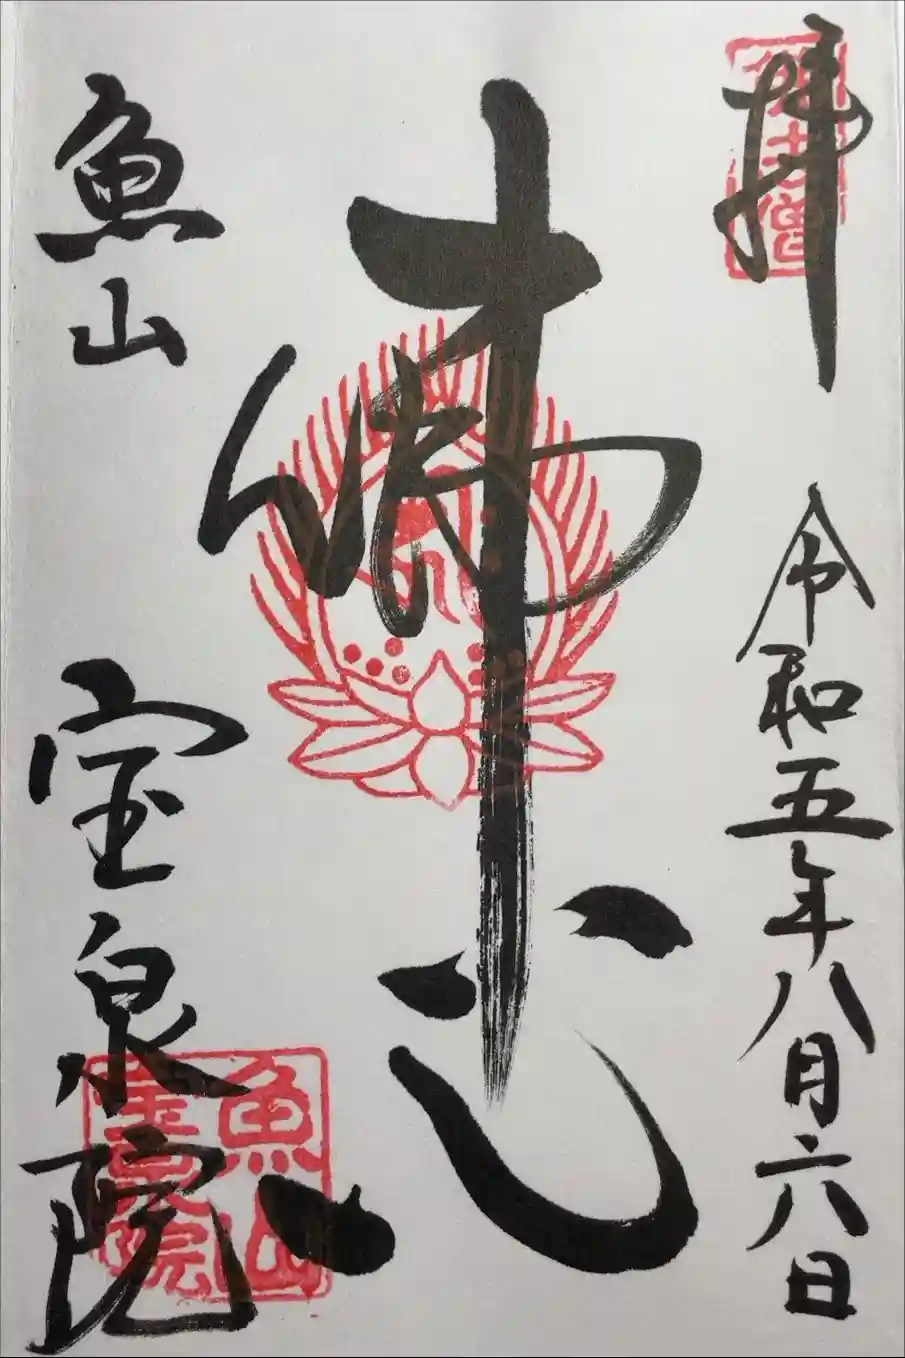 拝
令和五年八月六日
心
魚山
宝泉院
魚山
宝泉院